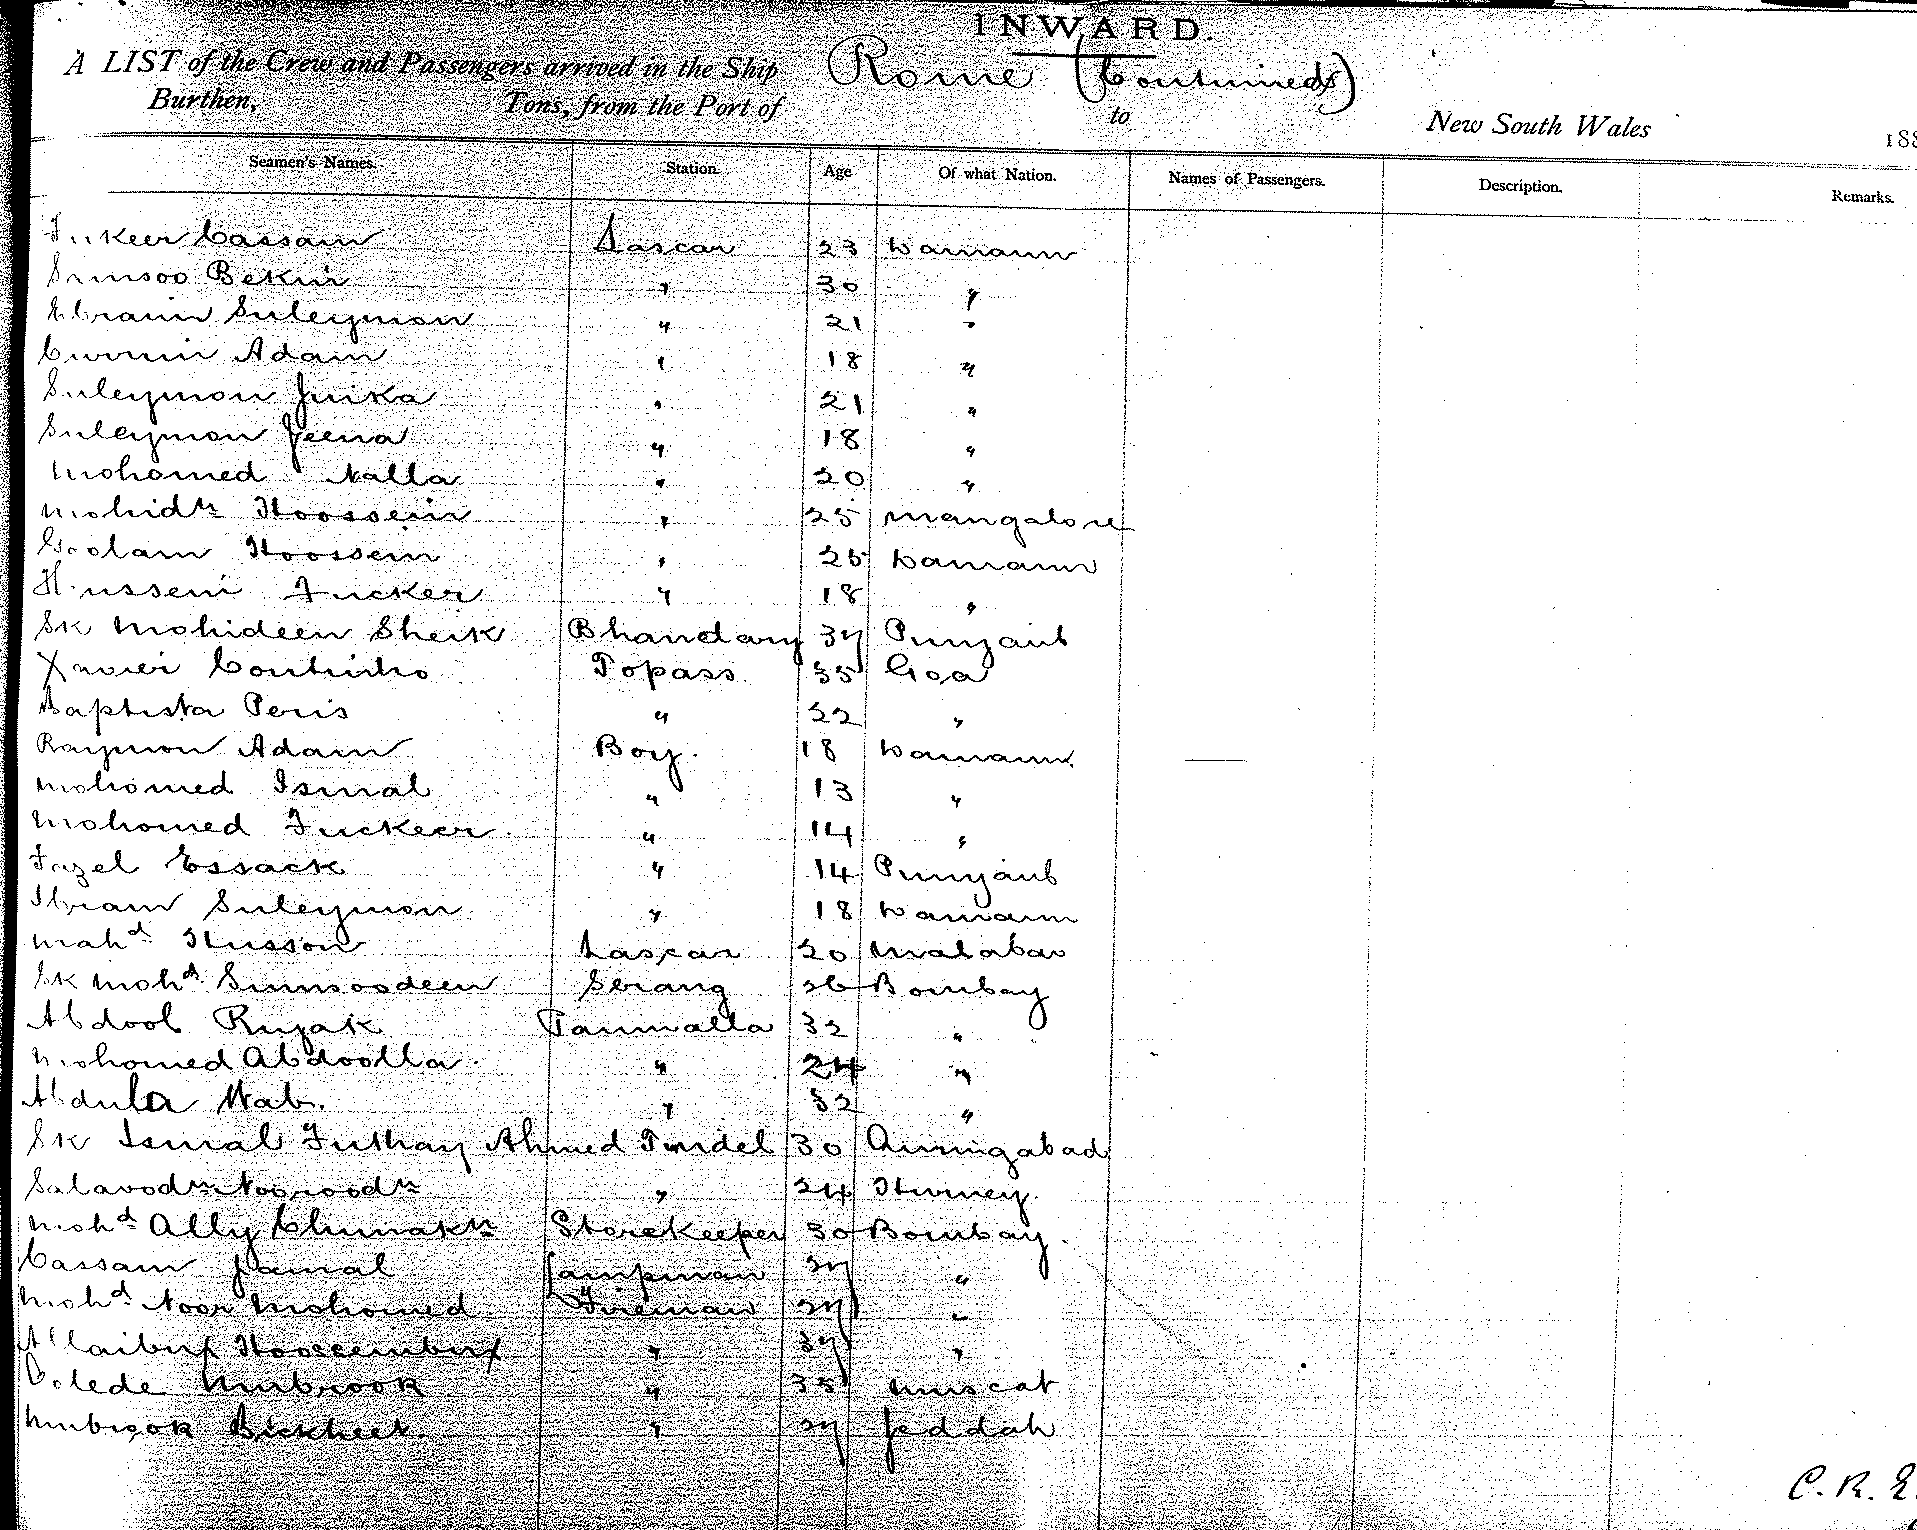 INWARD.
A LIST of the Crew and Passengers arrived in the Ship Rome (Continued)
Burthen, Tons, from the Port of to New South Wales 188
Seamen's Names. Station. Age Of what Nation. Names of Passengers. Description. Remarks.
Fukeer Cassam Lascar 23 Damann
Sumsoo Bekur " 30 "
Ebraim Suleymon " 21 "
Currim Adam " 18 "
Suleymon Juika " 21 "
Suleymon Jeena " 18 "
Mohomed Nalla " 20 "
Mohidn Hoossein " 25 Mangalore
Goolam Hoossein " 25 Damann
Husseni Fucker " 18 "
Sk Mohideen Sheik Bhandary 37 Punjaub
Xavier Coutinho Topass 35 Goa
Baptista Peris " 22 "
Raymon Adam Boy. 18 Damann.
Mohomed Ismal " 13 "
Mohomed Fuckeer " 14 "
Fazel Essack " 14 Punyaub
Ibram Suleymon " 18 Damann
Mahd Husson Lascar 20 Malabar
Sk Mohd Sumsoodeen Serang 36 Bombay
Abdool Rujak Paniwalla 32 "
Mohomed Abdoolla " 24 "
Abdula Wab. " 32 "
Sk Ismal Futhay Ahmed Tindel 30 Aurungabad
Salavodn Nooroodn " 24 Hurney.
Mohd Ally Chunakn Storekeeper 30 Bombay.
Cassam Jamal Lampman 37 "
Mohd Noor Mohomed Fireman 27 "
Allaibux Hooseembux " 37 "
Mubrook " 35 Muscat
Mubrook Bickheet " 27 Jeddah
C. R. E.